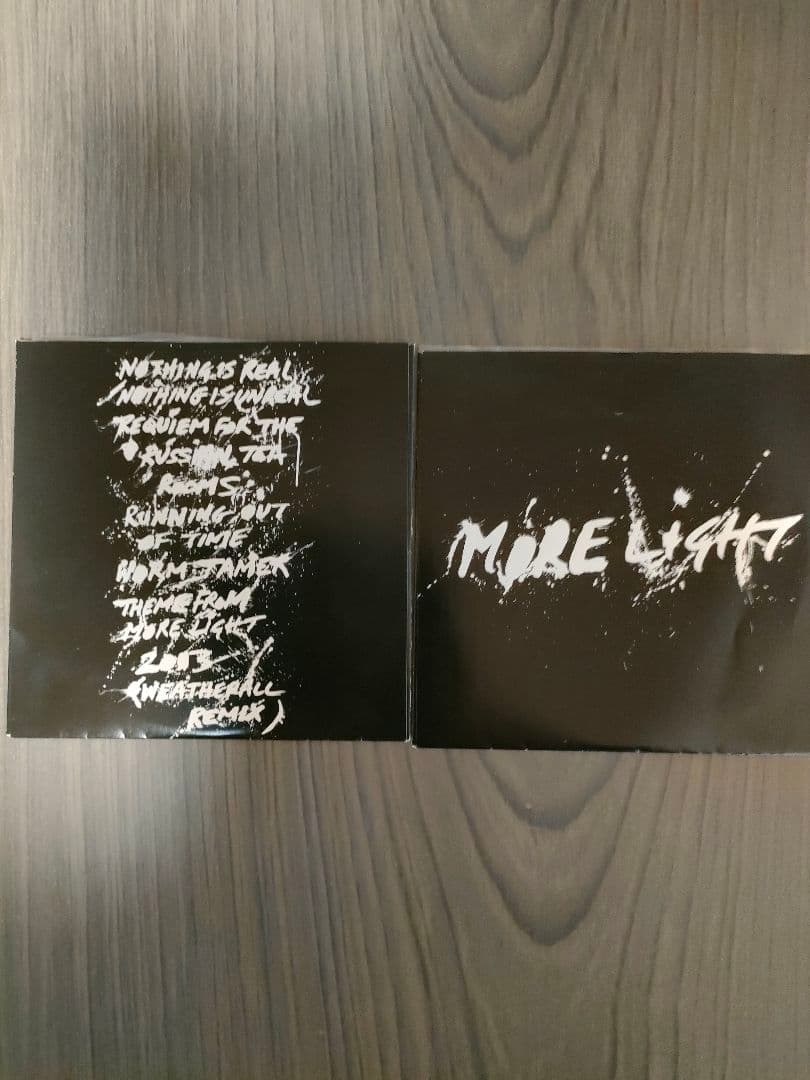 NOTHING IS REAL
/NOTHING IS UNREAL
REQUIEM FOR THE
RUSSIAN TEA
ROOMS
RUNNING OUT
OF TIME
WORM TAMER
THEME FROM
MORE LIGHT
2013
(WEATHERALL
REMIX)
MORE LIGHT